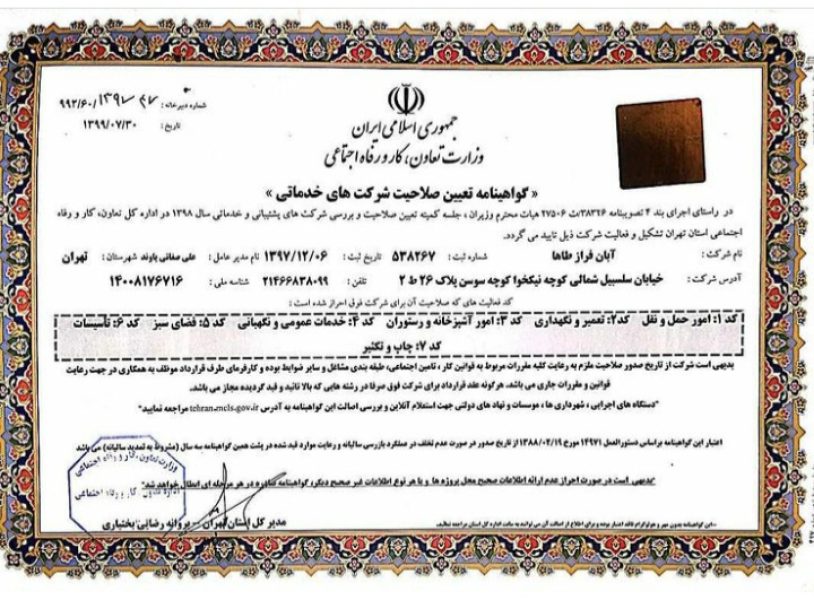 شماره دبیرخانه:
تاریخ: ۱۳۹۹/۰۷/۳۰
جمهوری اسلامی ایران
وزارت تعاون، کار و رفاه اجتماعی
« گواهینامه تعیین صلاحیت شرکت های خدماتی »
در راستای اجرای بند ۴ تصویبنامه ۳۸۳۲۶/ت ۲۷۵۰۶ هیات محترم وزیران ، جلسه کمیته تعیین صلاحیت و بررسی شرکت های پشتیبانی و خدماتی سال ۱۳۹۸ در اداره کل تعاون، کار و رفاه
اجتماعی استان تهران تشکیل و فعالیت شرکت ذیل تایید می گردد.
نام شرکت : آبان فراز طاها شماره ثبت : ۵۳۸۲۶۷ تاریخ ثبت : ۱۳۹۷/۱۲/۰۶ نام مدیر عامل : علی صفائی باوند شهرستان : تهران
آدرس شرکت : خیابان سلسبیل شمالی کوچه نیکخوا کوچه سوسن پلاک ۲۶ ط ۲ تلفن : ۲۱۴۶۶۸۳۸۰۹۹ شناسه ملی : ۱۴۰۰۸۱۷۶۷۱۶
کد فعالیت های که صلاحیت آن برای شرکت فوق احراز شده است :
کد ۱: امور حمل و نقل کد۲: تعمیر و نگهداری کد ۳: امور آشپزخانه و رستوران کد ۴: خدمات عمومی و نگهبانی کد ۵: فضای سبز کد ۶: تأسیسات
کد ۷: چاپ و تکثیر
بدیهی است شرکت از تاریخ صدور صلاحیت ملزم به رعایت کلیه مقررات مربوط به قوانین کار ، تامین اجتماعی، طبقه بندی مشاغل و سایر ضوابط بوده و کارفرمای طرف قرارداد موظف به همکاری در جهت رعایت
قوانین و مقررات جاری می باشد. هرگونه عقد قرارداد برای شرکت فوق صرفا در رشته هایی که بالا تائید و قید گردیده مجاز می باشد.
"دستگاه های اجرایی ، شهرداری ها ، موسسات و نهاد های دولتی جهت استعلام آنلاین و بررسی اصالت این گواهینامه به آدرس tehran.mcls.gov.ir مراجعه نمایید"
اعتبار این گواهینامه براساس دستورالعمل ۱۴۹۷۱ مورخ ۱۳۸۸/۰۲/۱۹ از تاریخ صدور در صورت عدم تخلف در عملکرد بازرسی سالیانه و رعایت موارد قید شده در پشت همین گواهینامه سه سال (مشروط به تمدید سالیانه) می باشد
"بدیهی است در صورت احراز عدم ارائه اطلاعات صحیح محل پروژه ها و یا هر نوع اطلاعات غیر صحیح دیگر، گواهینامه صادره در هر مرحله ای ابطال خواهد شد."
وزارت تعاون، کار و رفاه اجتماعی
مدیر کل استان تهران – پروانه رضایی بختیاری